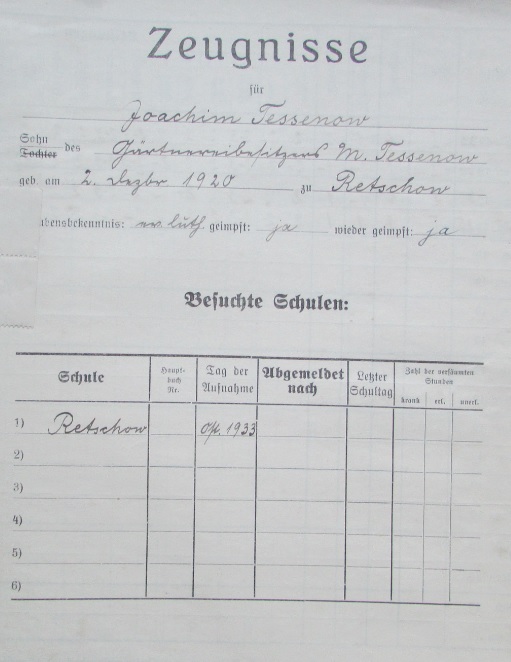 Zeugnisse
für
Joachim Tessenow
Sohn
Tochter des Gärtnereibesitzers M. Tessenow
geb. am 2. Dezbr 1920 zu Retschow
bensbekenntnis: ev. luth. geimpft: ja wieder geimpft: ja
Besuchte Schulen:
Schule Haupt-buch Nr. Tag der Aufnahme Abgemeldet nach Letzter Schultag Zahl der versäumten Stunden
krank ent. unent.
1) Retschow 1933
2)
3)
4)
5)
6)